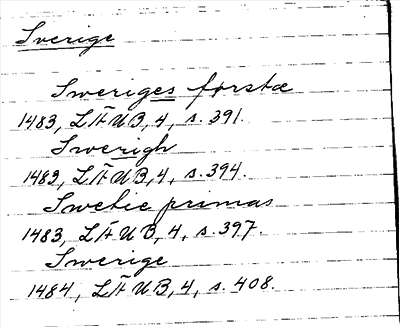 Sverige
Sweriges første
1483, LÄUB, 4, s. 391.
Swerigh
1483, LÄUB, 4, s. 394.
Swecie primas
1483, LÄUB, 4, s. 397.
Swerige
1484, LÄUB, 4, s. 408.